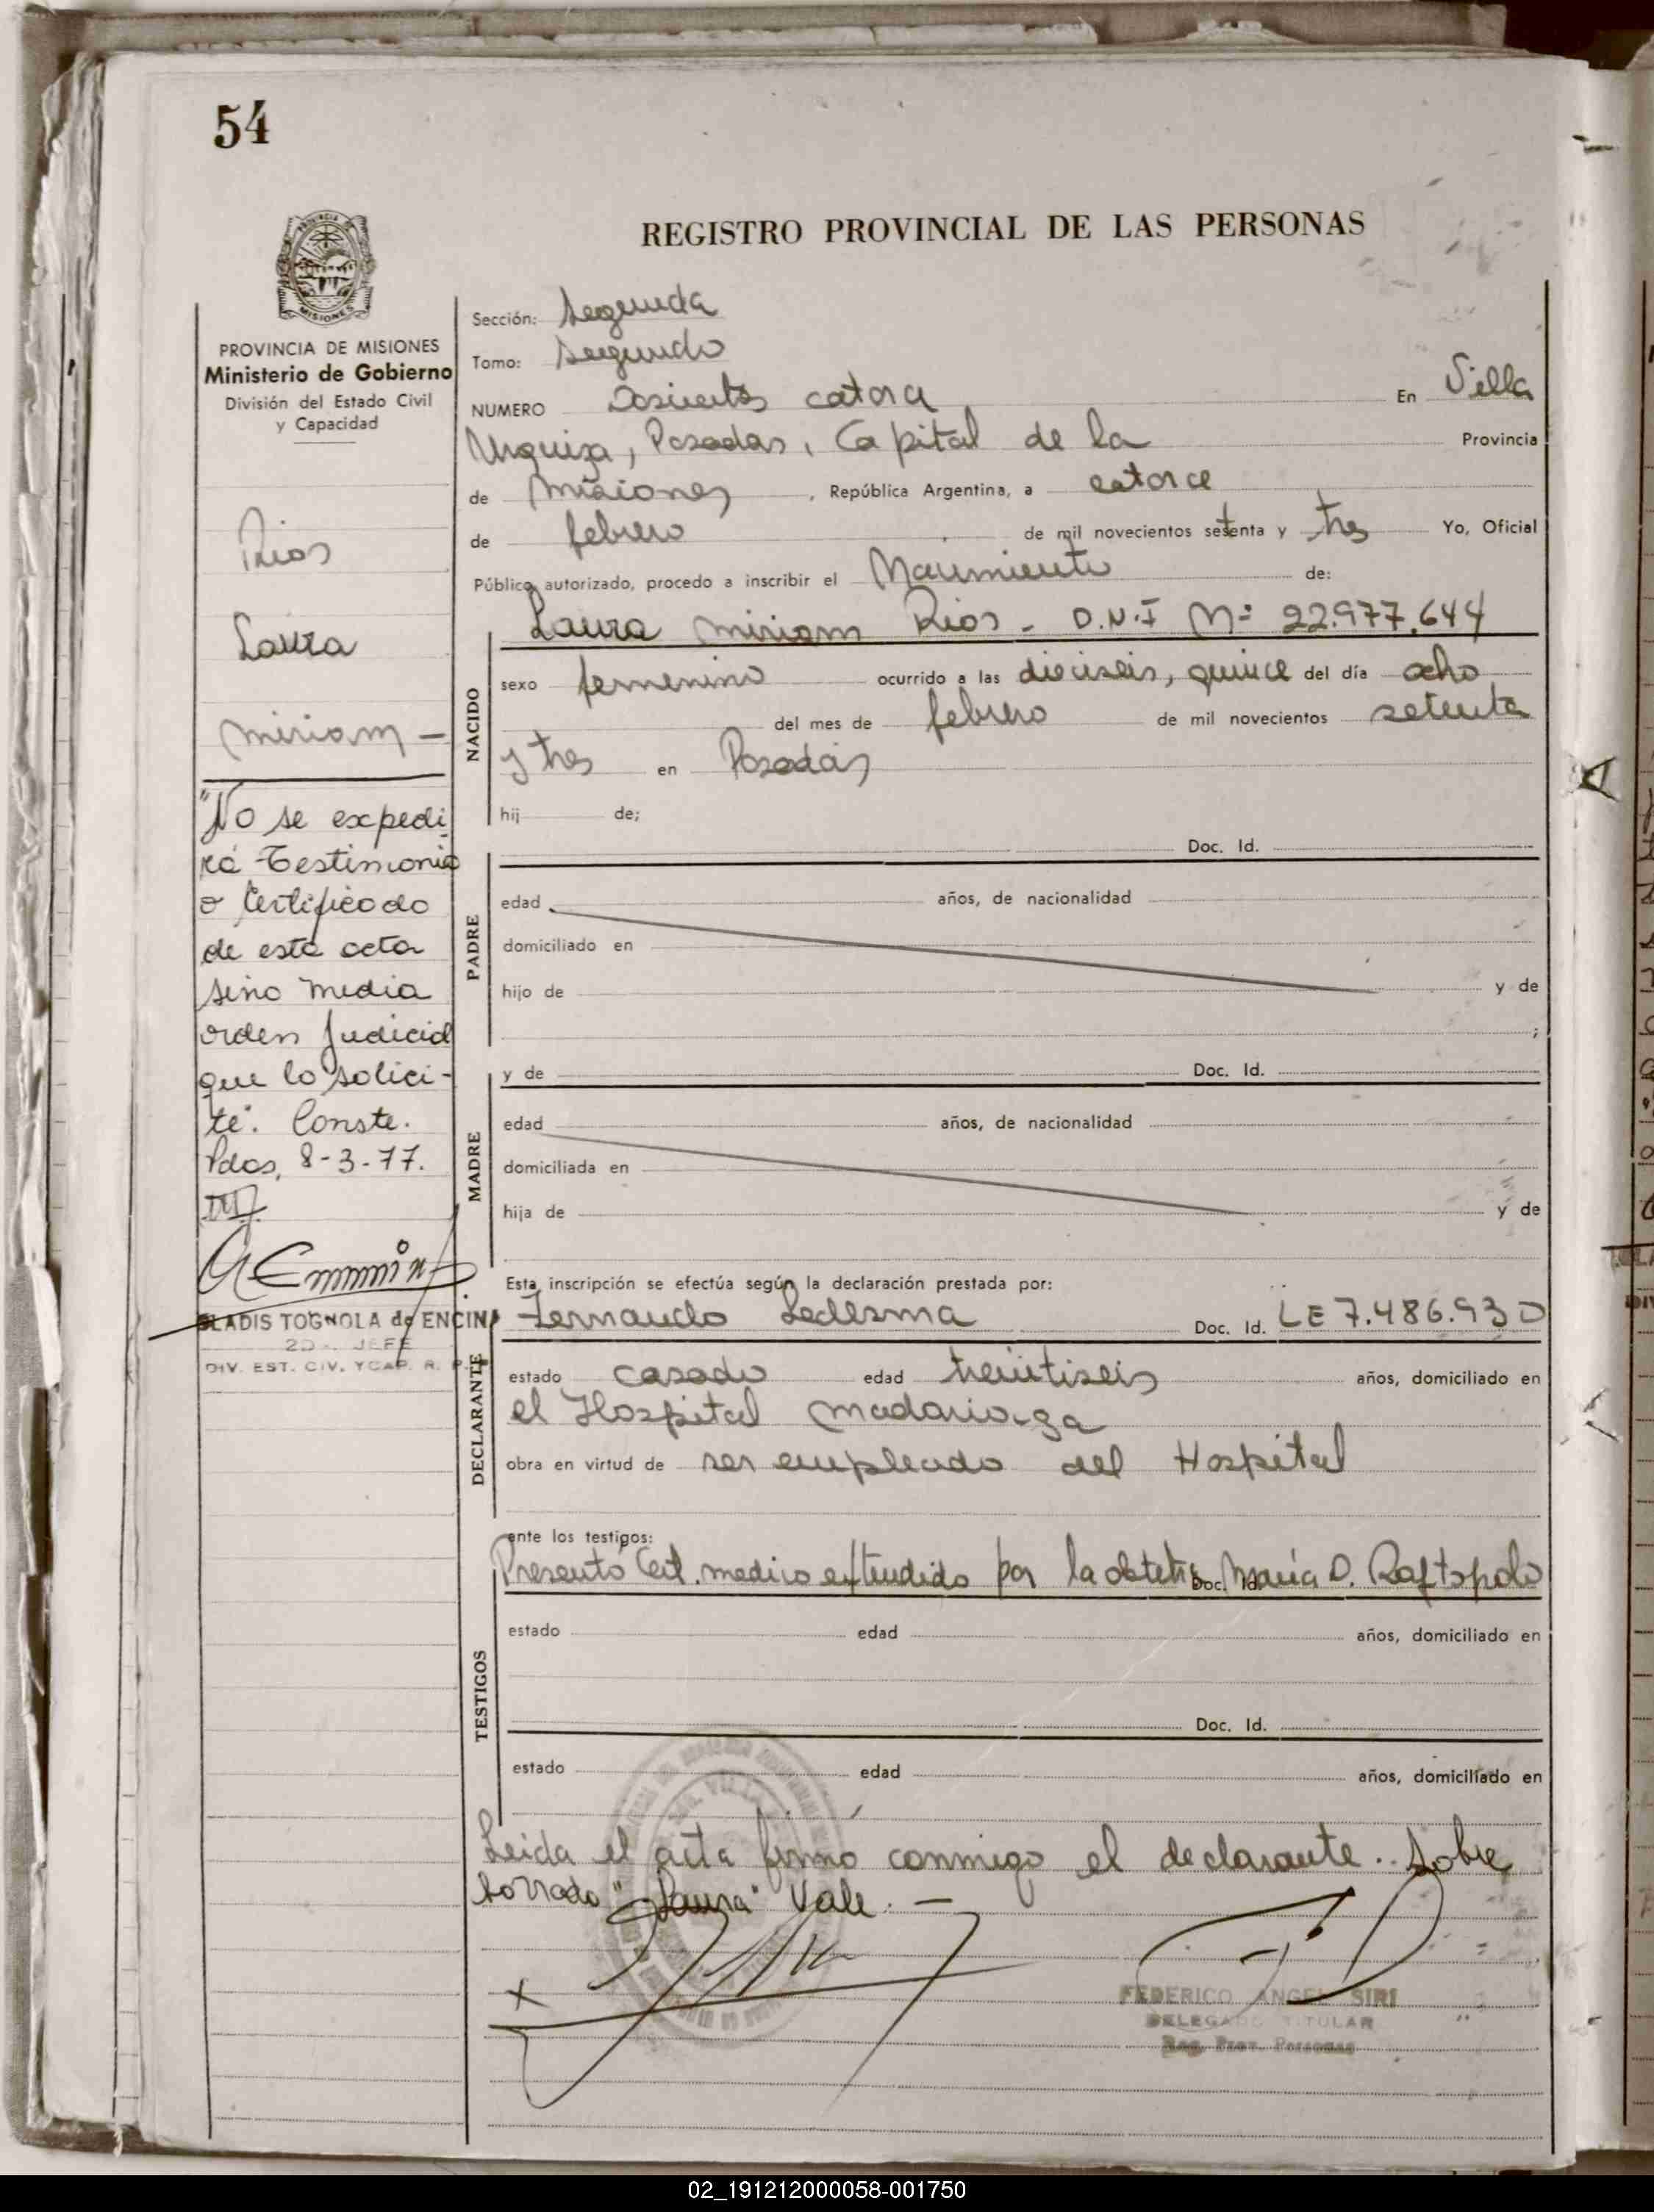 54
REGISTRO PROVINCIAL DE LAS PERSONAS
PROVINCIA
MISIONES
PROVINCIA DE MISIONES
Ministerio de Gobierno
División del Estado Civil
y Capacidad
Rios
Laura
Miriam -
"No se expedi
rá Testimonio
o Certificado
de esta acta
sino media
orden Judicial
que lo solici-
te". Conste.
Pdas, 8-3-77.
GLADIS TOGNOLA de ENCINA
2DO. JEFE
DIV. EST. CIV. Y CAP. R. P.
Sección: Segunda
Tomo: Segundo
NUMERO Doscientos catorce En Villa
Urquiza, Posadas, Capital de la Provincia
de Misiones, República Argentina, a catorce
de febrero de mil novecientos setenta y tres Yo, Oficial
Público autorizado, procedo a inscribir el Nacimiento de:
Laura Miriam Rios - D.N.I Nº 22.977.644
NACIDO
sexo femenino ocurrido a las dieciseis, quince del día ocho
del mes de febrero de mil novecientos setenta
y tres en Posadas
hij de;
Doc. Id.
PADRE
edad años, de nacionalidad
domiciliado en
hijo de y de
;
y de Doc. Id.
MADRE
edad años, de nacionalidad
domiciliada en
hija de y de
Esta inscripción se efectúa según la declaración prestada por:
Fernando Ledesma Doc. Id. LE 7.486.930
DECLARANTE
estado casado edad treintiseis años, domiciliado en
el Hospital Madariaga
obra en virtud de ser empleado del Hospital
ante los testigos:
Presentó Cert. medico extendido por la obtetriz Doc. Id. María D. Raftopolo
TESTIGOS
estado edad años, domiciliado en
Doc. Id.
estado edad años, domiciliado en
Leida el acta firmó conmigo el declarante. Sobre
borrado "Laura" Vale. -
FEDERICO ANGEL SIRI
DELEGADO TITULAR
Reg. Prov. Personas
02_191212000058-001750